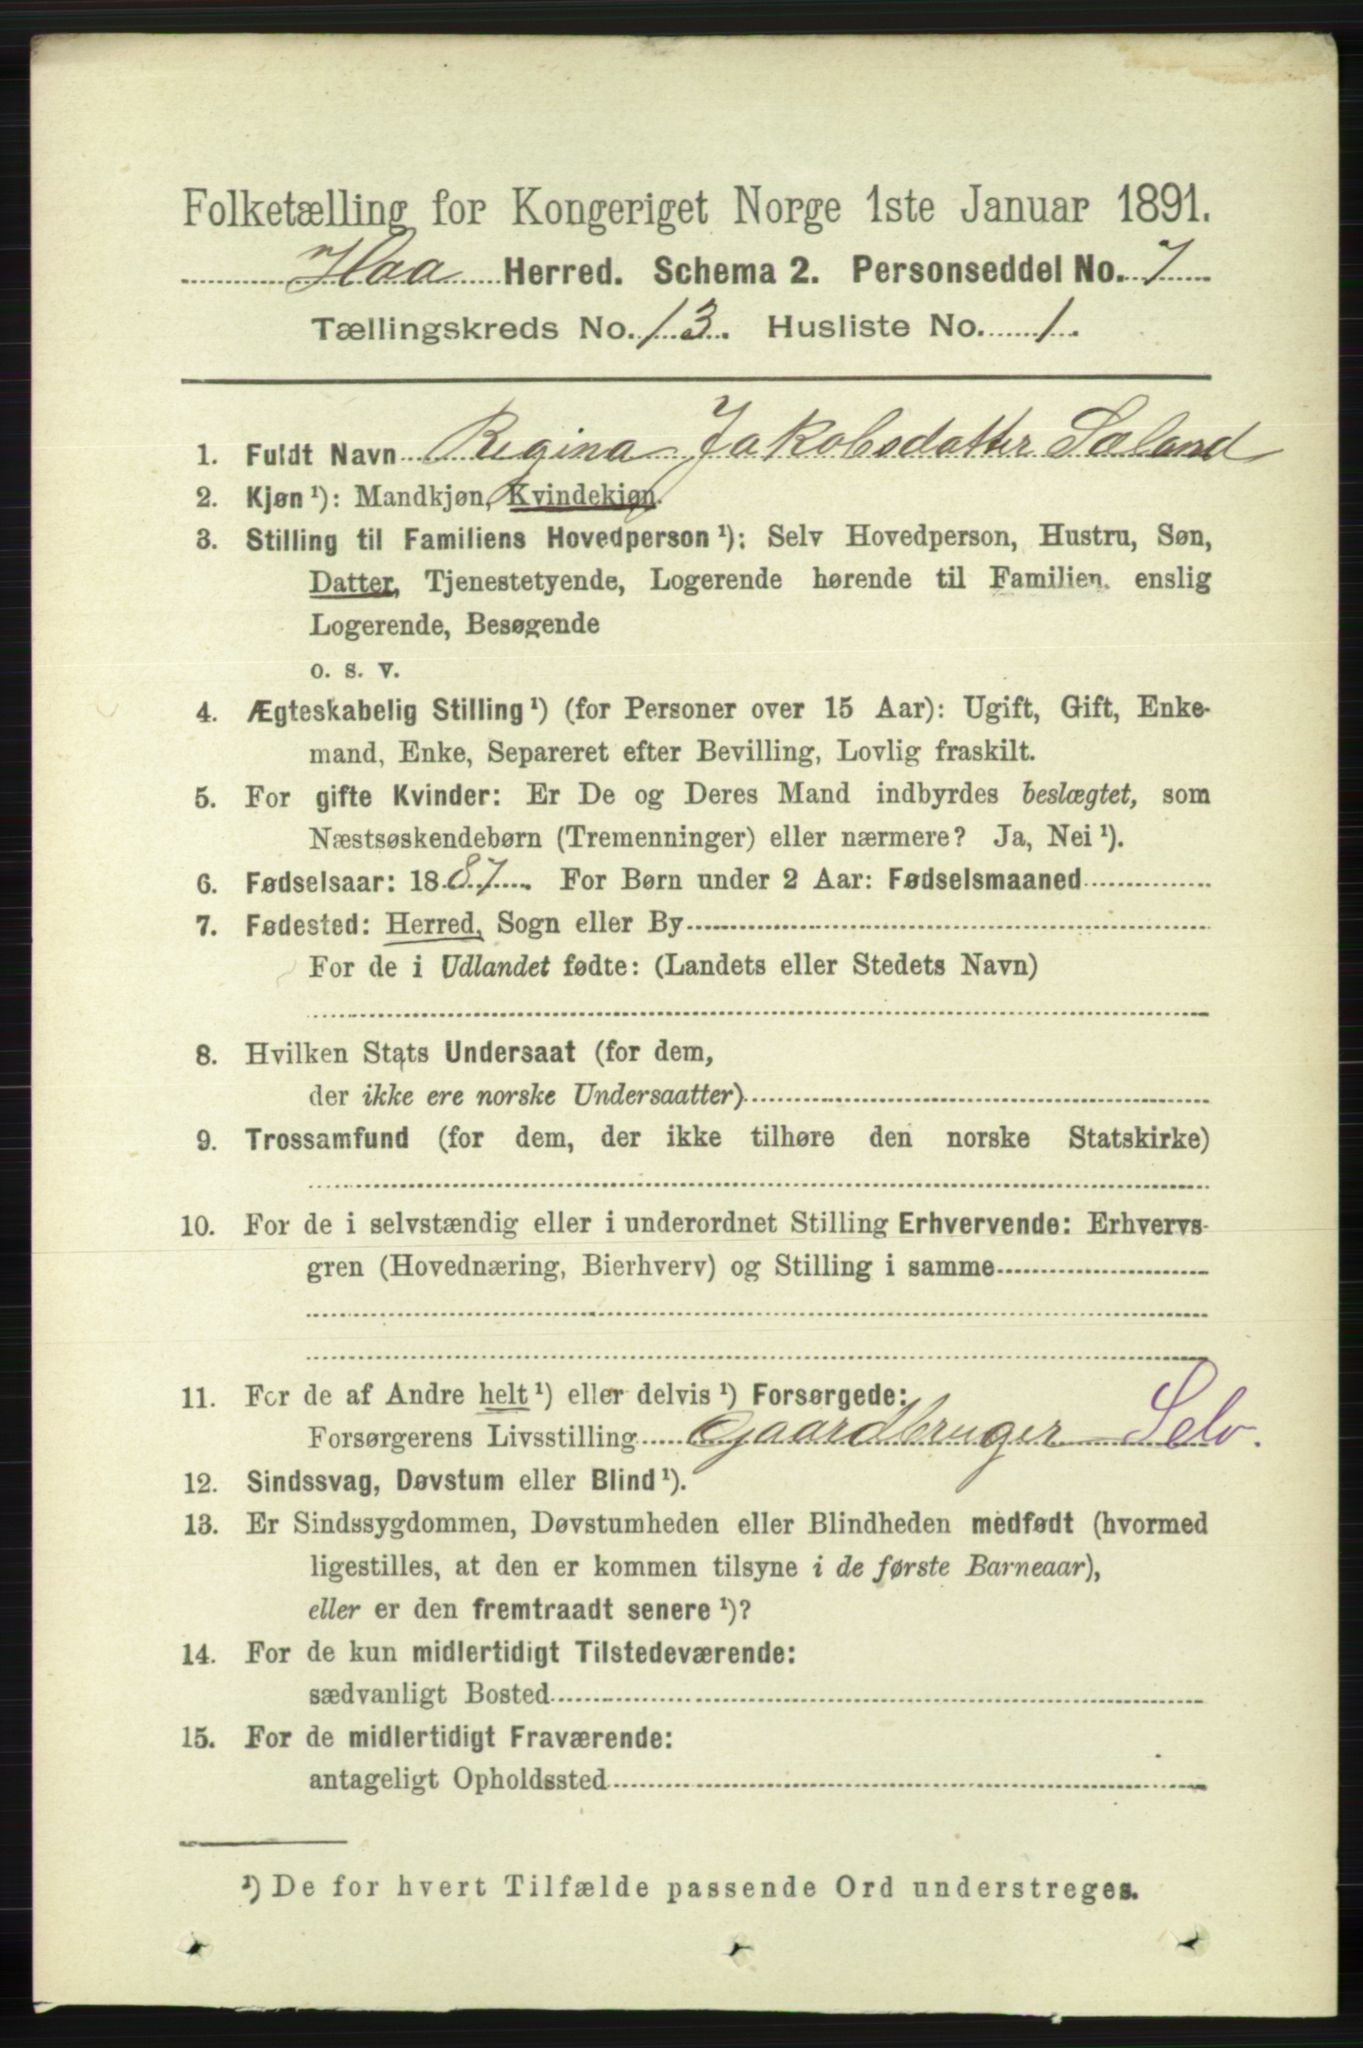 Folketælling for Kongeriget Norge 1ste Januar 1891.
Haa Herred. Schema 2. Personseddel No. 7
Tællingskreds No. 13. Husliste No. 1.
1. Fuldt Navn Regina Jakobsdatter Sæland
2. Kjøn¹): Mandkjøn, Kvindekjøn.
3. Stilling til Familiens Hovedperson¹): Selv Hovedperson, Hustru, Søn,
Datter, Tjenestetyende, Logerende hørende til Familien, enslig
Logerende, Besøgende
o. s. v.
4. Ægteskabelig Stilling¹) (for Personer over 15 Aar): Ugift, Gift, Enke-
mand, Enke, Separeret efter Bevilling, Lovlig fraskilt.
5. For gifte Kvinder: Er De og Deres Mand indbyrdes beslægtet, som
Næstsøskendebørn (Tremenninger) eller nærmere? Ja, Nei¹).
6. Fødselsaar: 1887. For Børn under 2 Aar: Fødselsmaaned
7. Fødested: Herred, Sogn eller By
For de i Udlandet fødte: (Landets eller Stedets Navn)
8. Hvilken Stats Undersaat (for dem,
der ikke ere norske Undersaatter)
9. Trossamfund (for dem, der ikke tilhøre den norske Statskirke)
10. For de i selvstændig eller i underordnet Stilling Erhvervende: Erhvervs-
gren (Hovednæring, Bierhverv) og Stilling i samme
11. For de af Andre helt¹) eller delvis¹) Forsørgede:
Forsørgerens Livsstilling Gaardbruger Selv.
12. Sindssvag, Døvstum eller Blind¹).
13. Er Sindssygdommen, Døvstumheden eller Blindheden medfødt (hvormed
ligestilles, at den er kommen tilsyne i de første Barneaar),
eller er den fremtraadt senere¹)?
14. For de kun midlertidigt Tilstedeværende:
sædvanligt Bosted
15. For de midlertidigt Fraværende:
antageligt Opholdssted
¹) De for hvert Tilfælde passende Ord understreges.